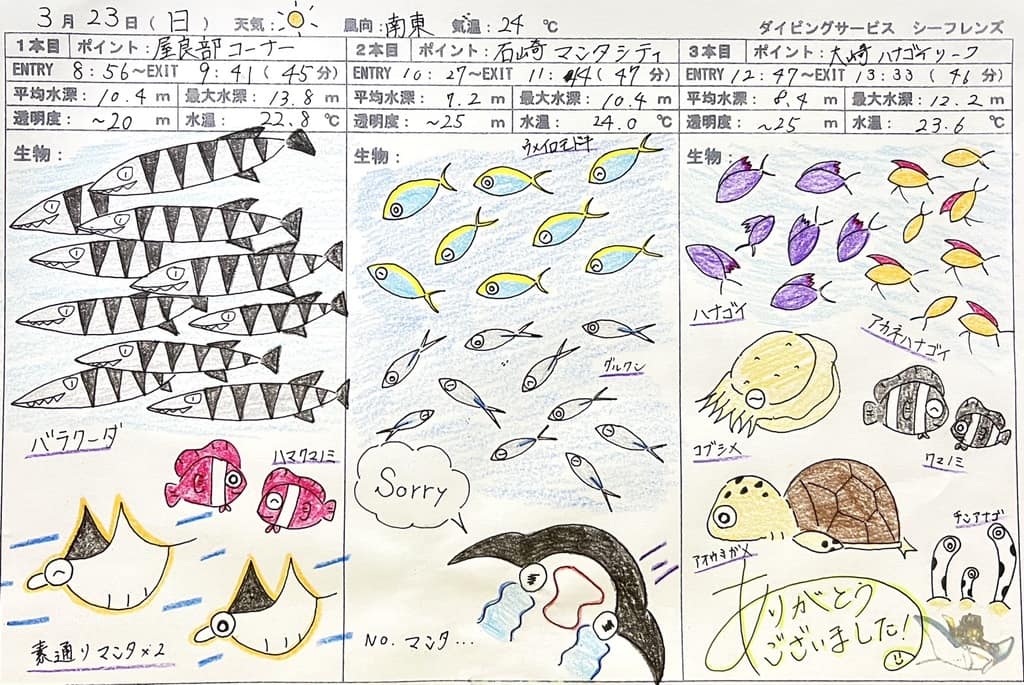 3月23日(日) 天気: 風向:南東 気温:24 ℃ ダイビングサービス シーフレンズ
1本目 ポイント: 屋良部コーナー
ENTRY 8:56～EXIT 9:41(45分)
平均水深: 10.4 m 最大水深: 13.8 m
透明度: ~20 m 水温: 22.8 ℃
生物:
バラクーダ
ハマクマノミ
素通りマンタ×2
2本目 ポイント: 石崎 マンタシティ
ENTRY 10:27～EXIT 11:14(47分)
平均水深: 7.2 m 最大水深: 10.4 m
透明度: ~25 m 水温: 24.0 ℃
生物:
ウメイロモドキ
グルクン
Sorry
NO. マンタ...
3本目 ポイント: 大崎 ハナゴイリーフ
ENTRY 12:47～EXIT 13:33(46分)
平均水深: 8.4 m 最大水深: 12.2 m
透明度: ~25 m 水温: 23.6 ℃
生物:
ハナゴイ
アカネハナゴイ
コブシメ
クマノミ
アオウミガメ
チンアナゴ
ありがとう
ございました!